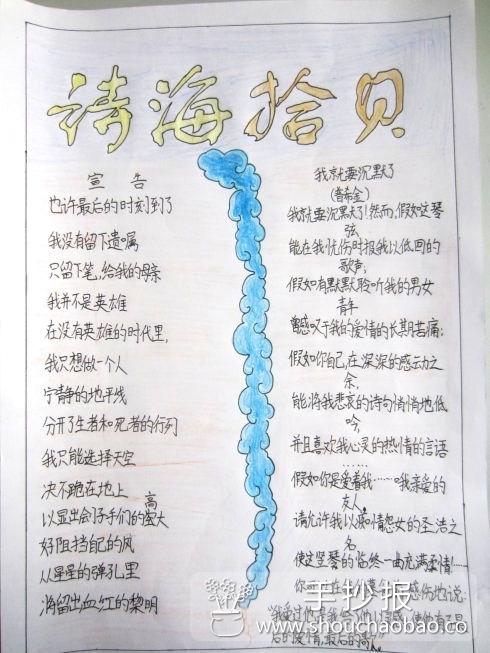 诗海拾贝
宣告
也许最后的时刻到了
我没有留下遗嘱
只留下笔,给我的母亲
我并不是英雄
在没有英雄的时代里,
我只想做一个人
宁静的地平线
分开了生者和死者的行列
我只能选择天空
决不跪在地上
以显出会子手们的高大
好阻挡自己的风
从星星的弹孔里
海留出血红的黎明
我就要沉默了
(普希金)
我就要沉默了!然而,假如这琴
弦,
能在我忧伤时报我以低回的
歌声;
假如有默默聆听我的男女
青年
曾感叹于我的爱情的长期苦痛;
假如你自己,在深深的感动之
余,
能将我悲哀的诗句悄悄地低
吟
并且喜欢我心灵的热情的言语
……
假如你是爱着我……哦我亲爱的
友人,
请允许我以痴情怨女的圣洁之
名
使这竖琴的临终一曲充满柔情!……
感伤地说:
的爱情,最后的歌。"
手抄报
www.shouchaobao.co